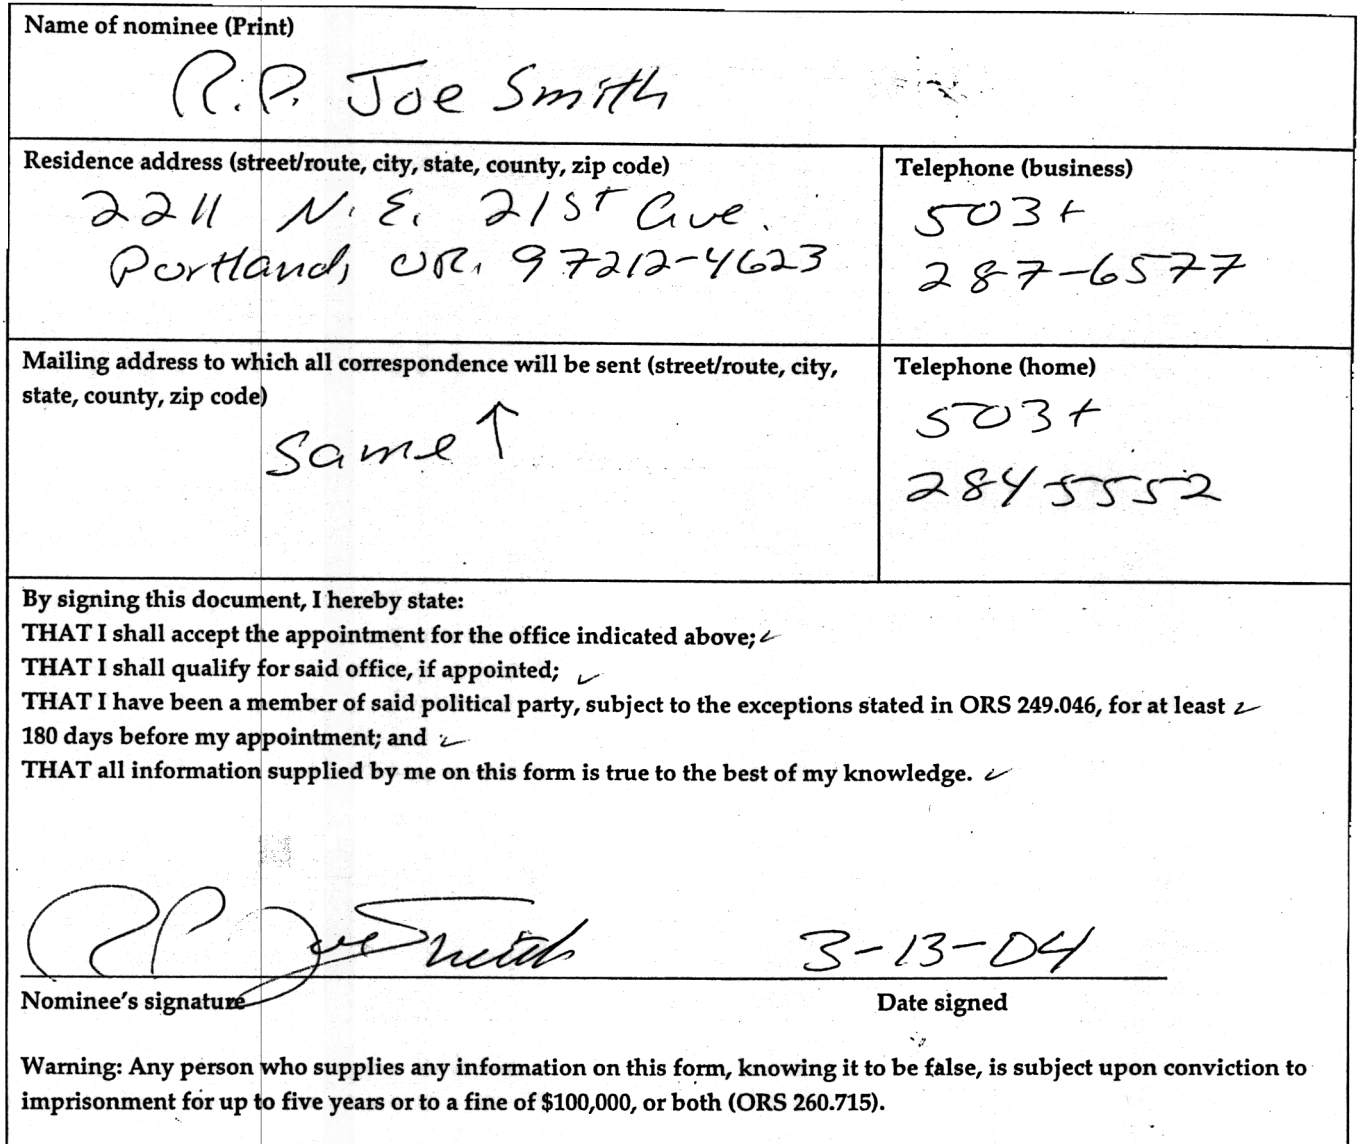 Name of nominee (Print)
R.P. Joe Smith
Residence address (street/route, city, state, county, zip code)
2211 N.E. 21st Ave.
Portland, OR. 97212-4623
Telephone (business)
503+
287-6577
Mailing address to which all correspondence will be sent (street/route, city,
state, county, zip code)
Same ↑
Telephone (home)
503+
284 5552
By signing this document, I hereby state:
THAT I shall accept the appointment for the office indicated above; ✓
THAT I shall qualify for said office, if appointed; ✓
THAT I have been a member of said political party, subject to the exceptions stated in ORS 249.046, for at least ✓
180 days before my appointment; and ✓
THAT all information supplied by me on this form is true to the best of my knowledge. ✓
RP Joe Smith
3-13-04
Nominee's signature
Date signed
Warning: Any person who supplies any information on this form, knowing it to be false, is subject upon conviction to
imprisonment for up to five years or to a fine of $100,000, or both (ORS 260.715).